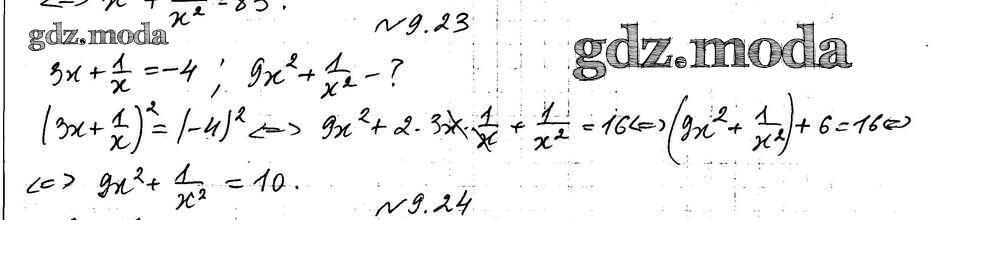 <=> x + /x² = 83.
№9.23
gdz.moda
gdz.moda
3x + 1/x = -4 ; 9x² + 1/x² - ?
(3x + 1/x)² = (-4)² <=> 9x² + 2 · 3x · 1/x + 1/x² = 16 <=> (9x² + 1/x²) + 6 = 16 <=>
<=> 9x² + 1/x² = 10.
№9.24